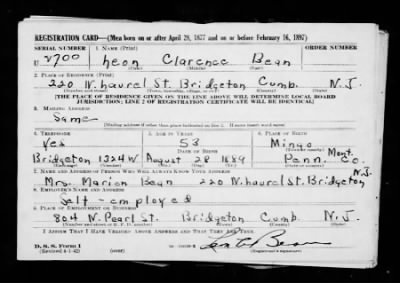 REGISTRATION CARD—(Men born on or after April 28, 1877 and on or before February 16, 1897)
SERIAL NUMBER 1. NAME (Print) ORDER NUMBER
U 2700 Leon Clarence Bean
(First) (Middle) (Last)
2. PLACE OF RESIDENCE (Print)
220 N. Laurel St. Bridgeton Cumb. N.J.
(Number and street) (Town, township, village, or city) (County) (State)
[THE PLACE OF RESIDENCE GIVEN ON THE LINE ABOVE WILL DETERMINE LOCAL BOARD
JURISDICTION; LINE 2 OF REGISTRATION CERTIFICATE WILL BE IDENTICAL]
3. MAILING ADDRESS
Same
[Mailing address if other than place indicated on line 2. If same insert word same]
4. TELEPHONE 5. AGE IN YEARS 6. PLACE OF BIRTH
Yes 53 Mingo
DATE OF BIRTH Mont.
Bridgeton 1324W August 28 1889 Penn. Co.
(Exchange) (Number) (Mo.) (Day) (Yr.) (State or country)
7. NAME AND ADDRESS OF PERSON WHO WILL ALWAYS KNOW YOUR ADDRESS N.J.
Mrs. Marion Bean 220 N. Laurel St. Bridgeton
8. EMPLOYER'S NAME AND ADDRESS
Self-employed
9. PLACE OF EMPLOYMENT OR BUSINESS
804 N. Pearl St. Bridgeton Cumb. N.J.
(Number and street or R. F. D. number) (Town) (County) (State)
I AFFIRM THAT I HAVE VERIFIED ABOVE ANSWERS AND THAT THEY ARE TRUE.
D. S. S. Form 1
(Revised 4-1-42) (over) (Registrant's signature)